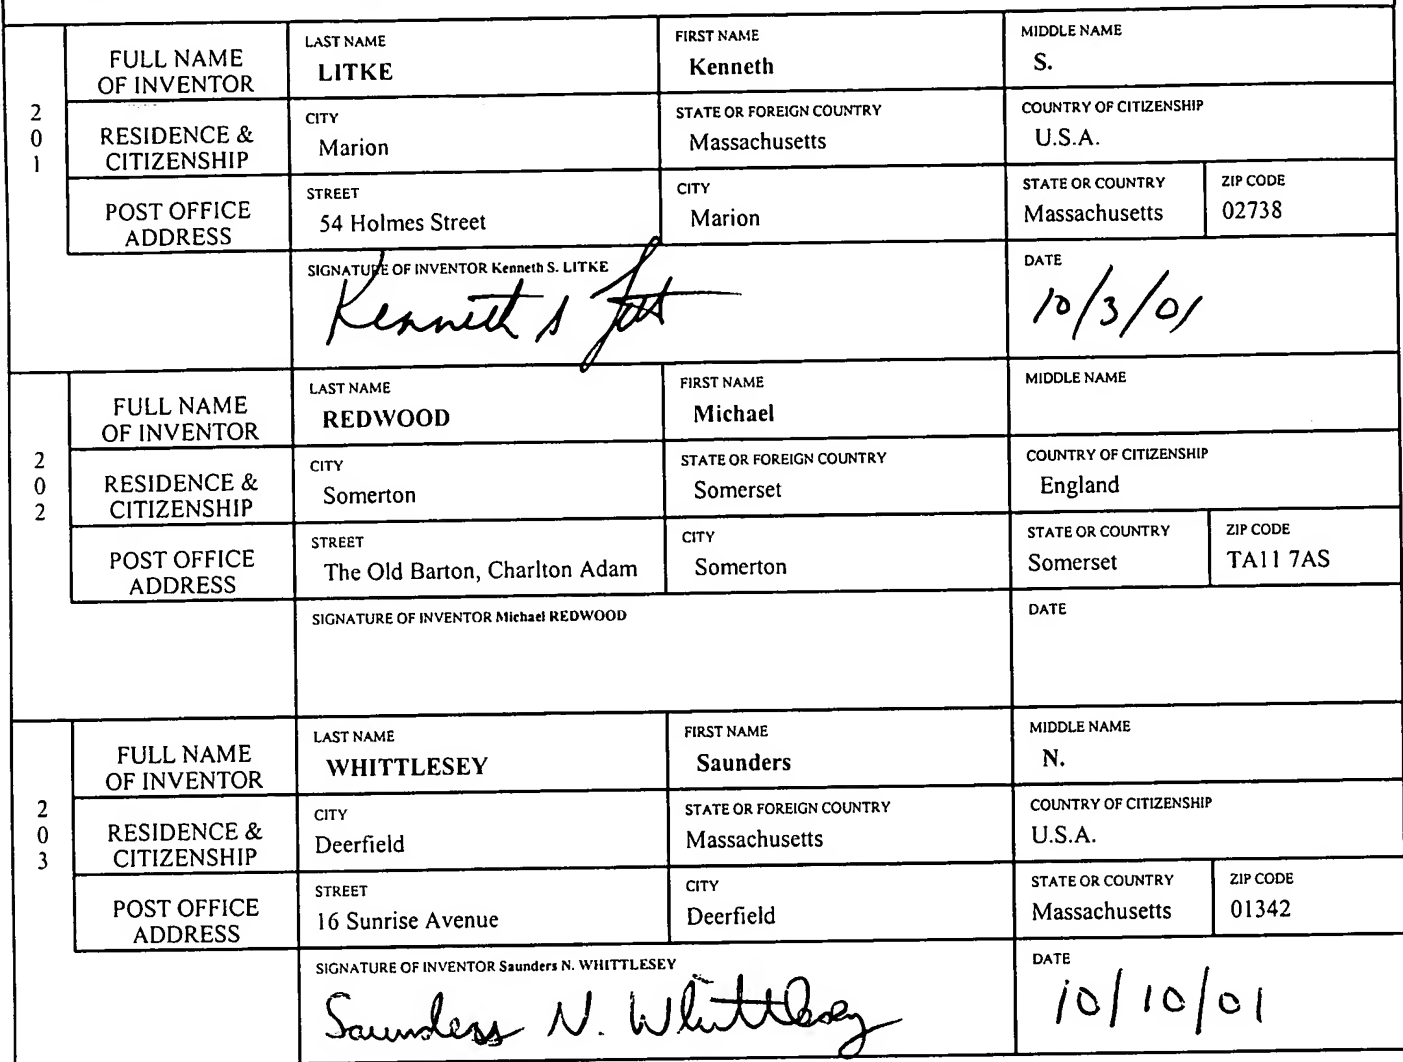 2
0
1
FULL NAME
OF INVENTOR
LAST NAME
LITKE
FIRST NAME
Kenneth
MIDDLE NAME
S.
RESIDENCE &
CITIZENSHIP
CITY
Marion
STATE OR FOREIGN COUNTRY
Massachusetts
COUNTRY OF CITIZENSHIP
U.S.A.
POST OFFICE
ADDRESS
STREET
54 Holmes Street
CITY
Marion
STATE OR COUNTRY
Massachusetts
ZIP CODE
02738
SIGNATURE OF INVENTOR Kenneth S. LITKE
Kenneth S
DATE
10/3/01
2
0
2
FULL NAME
OF INVENTOR
LAST NAME
REDWOOD
FIRST NAME
Michael
MIDDLE NAME
RESIDENCE &
CITIZENSHIP
CITY
Somerton
STATE OR FOREIGN COUNTRY
Somerset
COUNTRY OF CITIZENSHIP
England
POST OFFICE
ADDRESS
STREET
The Old Barton, Charlton Adam
CITY
Somerton
STATE OR COUNTRY
Somerset
ZIP CODE
TA11 7AS
SIGNATURE OF INVENTOR Michael REDWOOD
DATE
2
0
3
FULL NAME
OF INVENTOR
LAST NAME
WHITTLESEY
FIRST NAME
Saunders
MIDDLE NAME
N.
RESIDENCE &
CITIZENSHIP
CITY
Deerfield
STATE OR FOREIGN COUNTRY
Massachusetts
COUNTRY OF CITIZENSHIP
U.S.A.
POST OFFICE
ADDRESS
STREET
16 Sunrise Avenue
CITY
Deerfield
STATE OR COUNTRY
Massachusetts
ZIP CODE
01342
SIGNATURE OF INVENTOR Saunders N. WHITTLESEY
Saunders N. Whittlesey
DATE
10/10/01